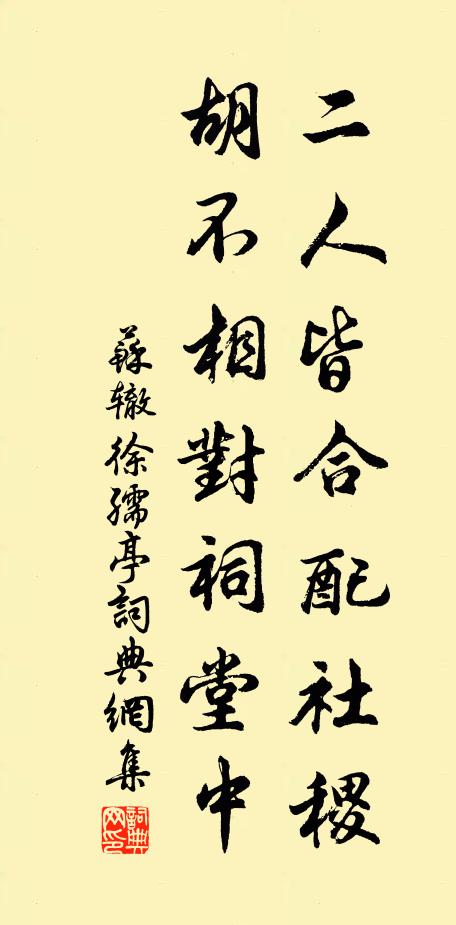 二人皆合配社稷
胡不相對祠堂中
蘇辙徐孺亭詞典網集
詞典网印